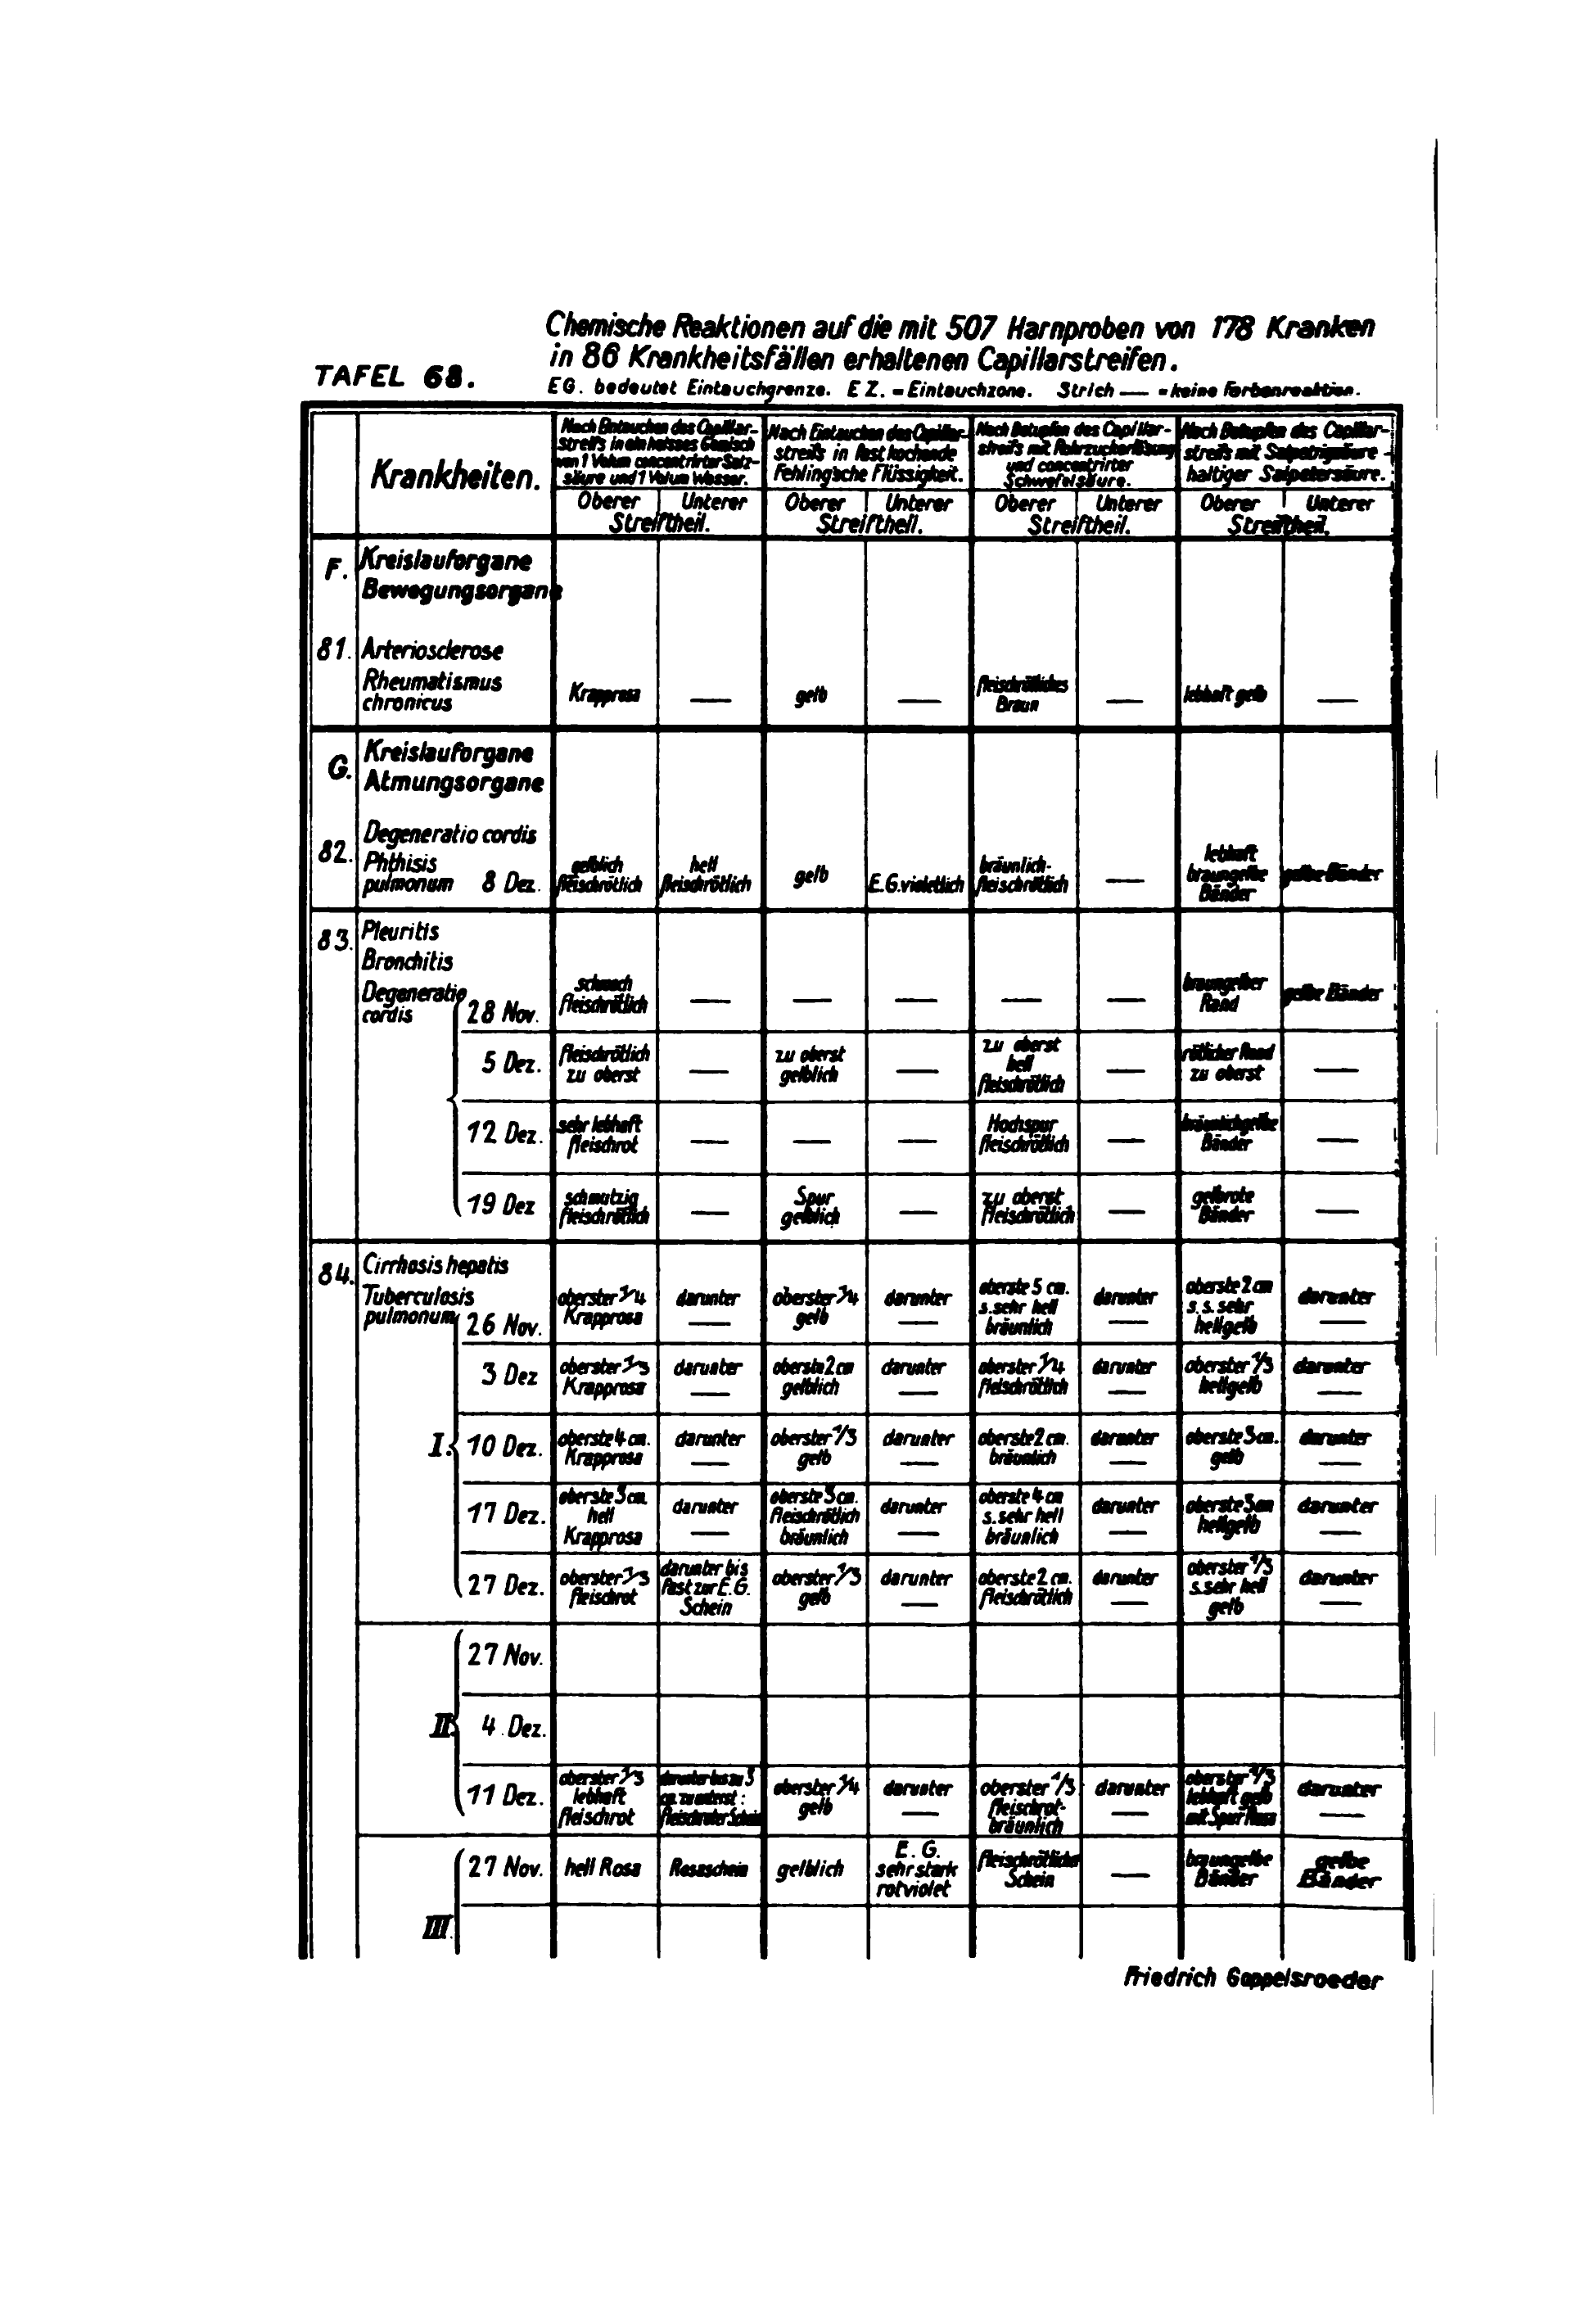 Chemische Reaktionen auf die mit 507 Harnproben von 178 Kranken
in 86 Krankheitsfällen erhaltenen Capillarstreifen.
TAFEL 68.
EG. bedeutet Eintauchgrenze. E Z. = Eintauchzone. Strich — = keine Farbenreaktion.
Krankheiten.
Nach Eintauchen des Capillar-
streifs in ein heisses Gemisch
von 1 Volum concentrirter Salz-
säure und 1 Volum Wasser.
Nach Eintauchen des Capillar-
streifs in fast kochende
Fehling'sche Flüssigkeit.
Nach Betupfen des Capillar-
streifs mit Rohrzuckerlösung
und concentrirter
Schwefelsäure.
Nach Betupfen des Capillar-
streifs mit Salpetrigsäure-
haltiger Salpetersäure.
Oberer Unterer Oberer Unterer Oberer Unterer Oberer Unterer
Streiftheil. Streiftheil. Streiftheil. Streiftheil.
F. Kreislauforgane
Bewegungsorgane
81. Arteriosclerose
Rheumatismus
chronicus
Krapprosa — gelb — fleischrötliches
Braun — lebhaft gelb —
G. Kreislauforgane
Atmungsorgane
82. Degeneratio cordis
Phthisis
pulmonum 8 Dez.
gelblich
fleischrötlich
hell
fleischrötlich
gelb
E.G. violetlich
bräunlich-
fleischrötlich
—
lebhaft
braungelbe
Bänder
gelbe Bänder
83. Pleuritis
Bronchitis
Degeneratio
cordis
28 Nov.
schwach
fleischrötlich
— — — — —
braungelber
Rand
gelbe Bänder
5 Dez.
fleischrötlich
zu oberst
—
zu oberst
gelblich
—
zu oberst
hell
fleischrötlich
—
rötlicher Rand
zu oberst
—
12 Dez.
sehr lebhaft
fleischrot
— — —
Hochspur
fleischrötlich
—
bräunlichgelbe
Bänder
—
19 Dez
schmutzig
fleischrötlich
—
Spur
gelblich
—
zu oberst
fleischrötlich
—
gelbrote
Bänder
—
84. Cirrhosis hepatis
Tuberculosis
pulmonum
I.
26 Nov.
oberster 1/4
Krapprosa
darunter
—
oberster 1/4
gelb
darunter
—
oberste 5 cm.
s. sehr hell
bräunlich
darunter
—
oberste 2 cm
s. s. sehr
hellgelb
darunter
—
3 Dez
oberster 1/3
Krapprosa
darunter
—
oberste 2 cm
gelblich
darunter
—
oberster 1/4
fleischrötlich
darunter
—
oberster 1/3
hellgelb
darunter
—
10 Dez.
oberste 4 cm.
Krapprosa
darunter
—
oberster 1/3
gelb
darunter
—
oberste 2 cm.
bräunlich
darunter
—
oberste 3 cm.
gelb
darunter
—
17 Dez.
oberste 3 cm.
hell
Krapprosa
darunter
—
oberste 3 cm.
fleischrötlich
bräunlich
darunter
—
oberste 4 cm
s. sehr hell
bräunlich
darunter
—
oberste 3 cm
hellgelb
darunter
—
27 Dez.
oberster 1/3
fleischrot
darunter bis
fast zur E.G.
Schein
oberster 1/3
gelb
darunter
—
oberste 2 cm.
fleischrötlich
darunter
—
oberster 1/3
s. sehr hell
gelb
darunter
—
II.
27 Nov.
4 Dez.
11 Dez.
oberster 1/3
lebhaft
fleischrot
darunter bis zu 3
cm. zu unterst:
fleischroter Schein
oberster 1/4
gelb
darunter
—
oberster 1/3
fleischrot-
bräunlich
darunter
—
oberster 1/3
lebhaft gelb
mit Spur Rosa
darunter
—
III.
27 Nov.
hell Rosa
Rosaschein
gelblich
E. G.
sehr stark
rotviolet
fleischrötlicher
Schein
—
braungelbe
Bänder
gelbe
Bänder
Friedrich Goppelsroeder